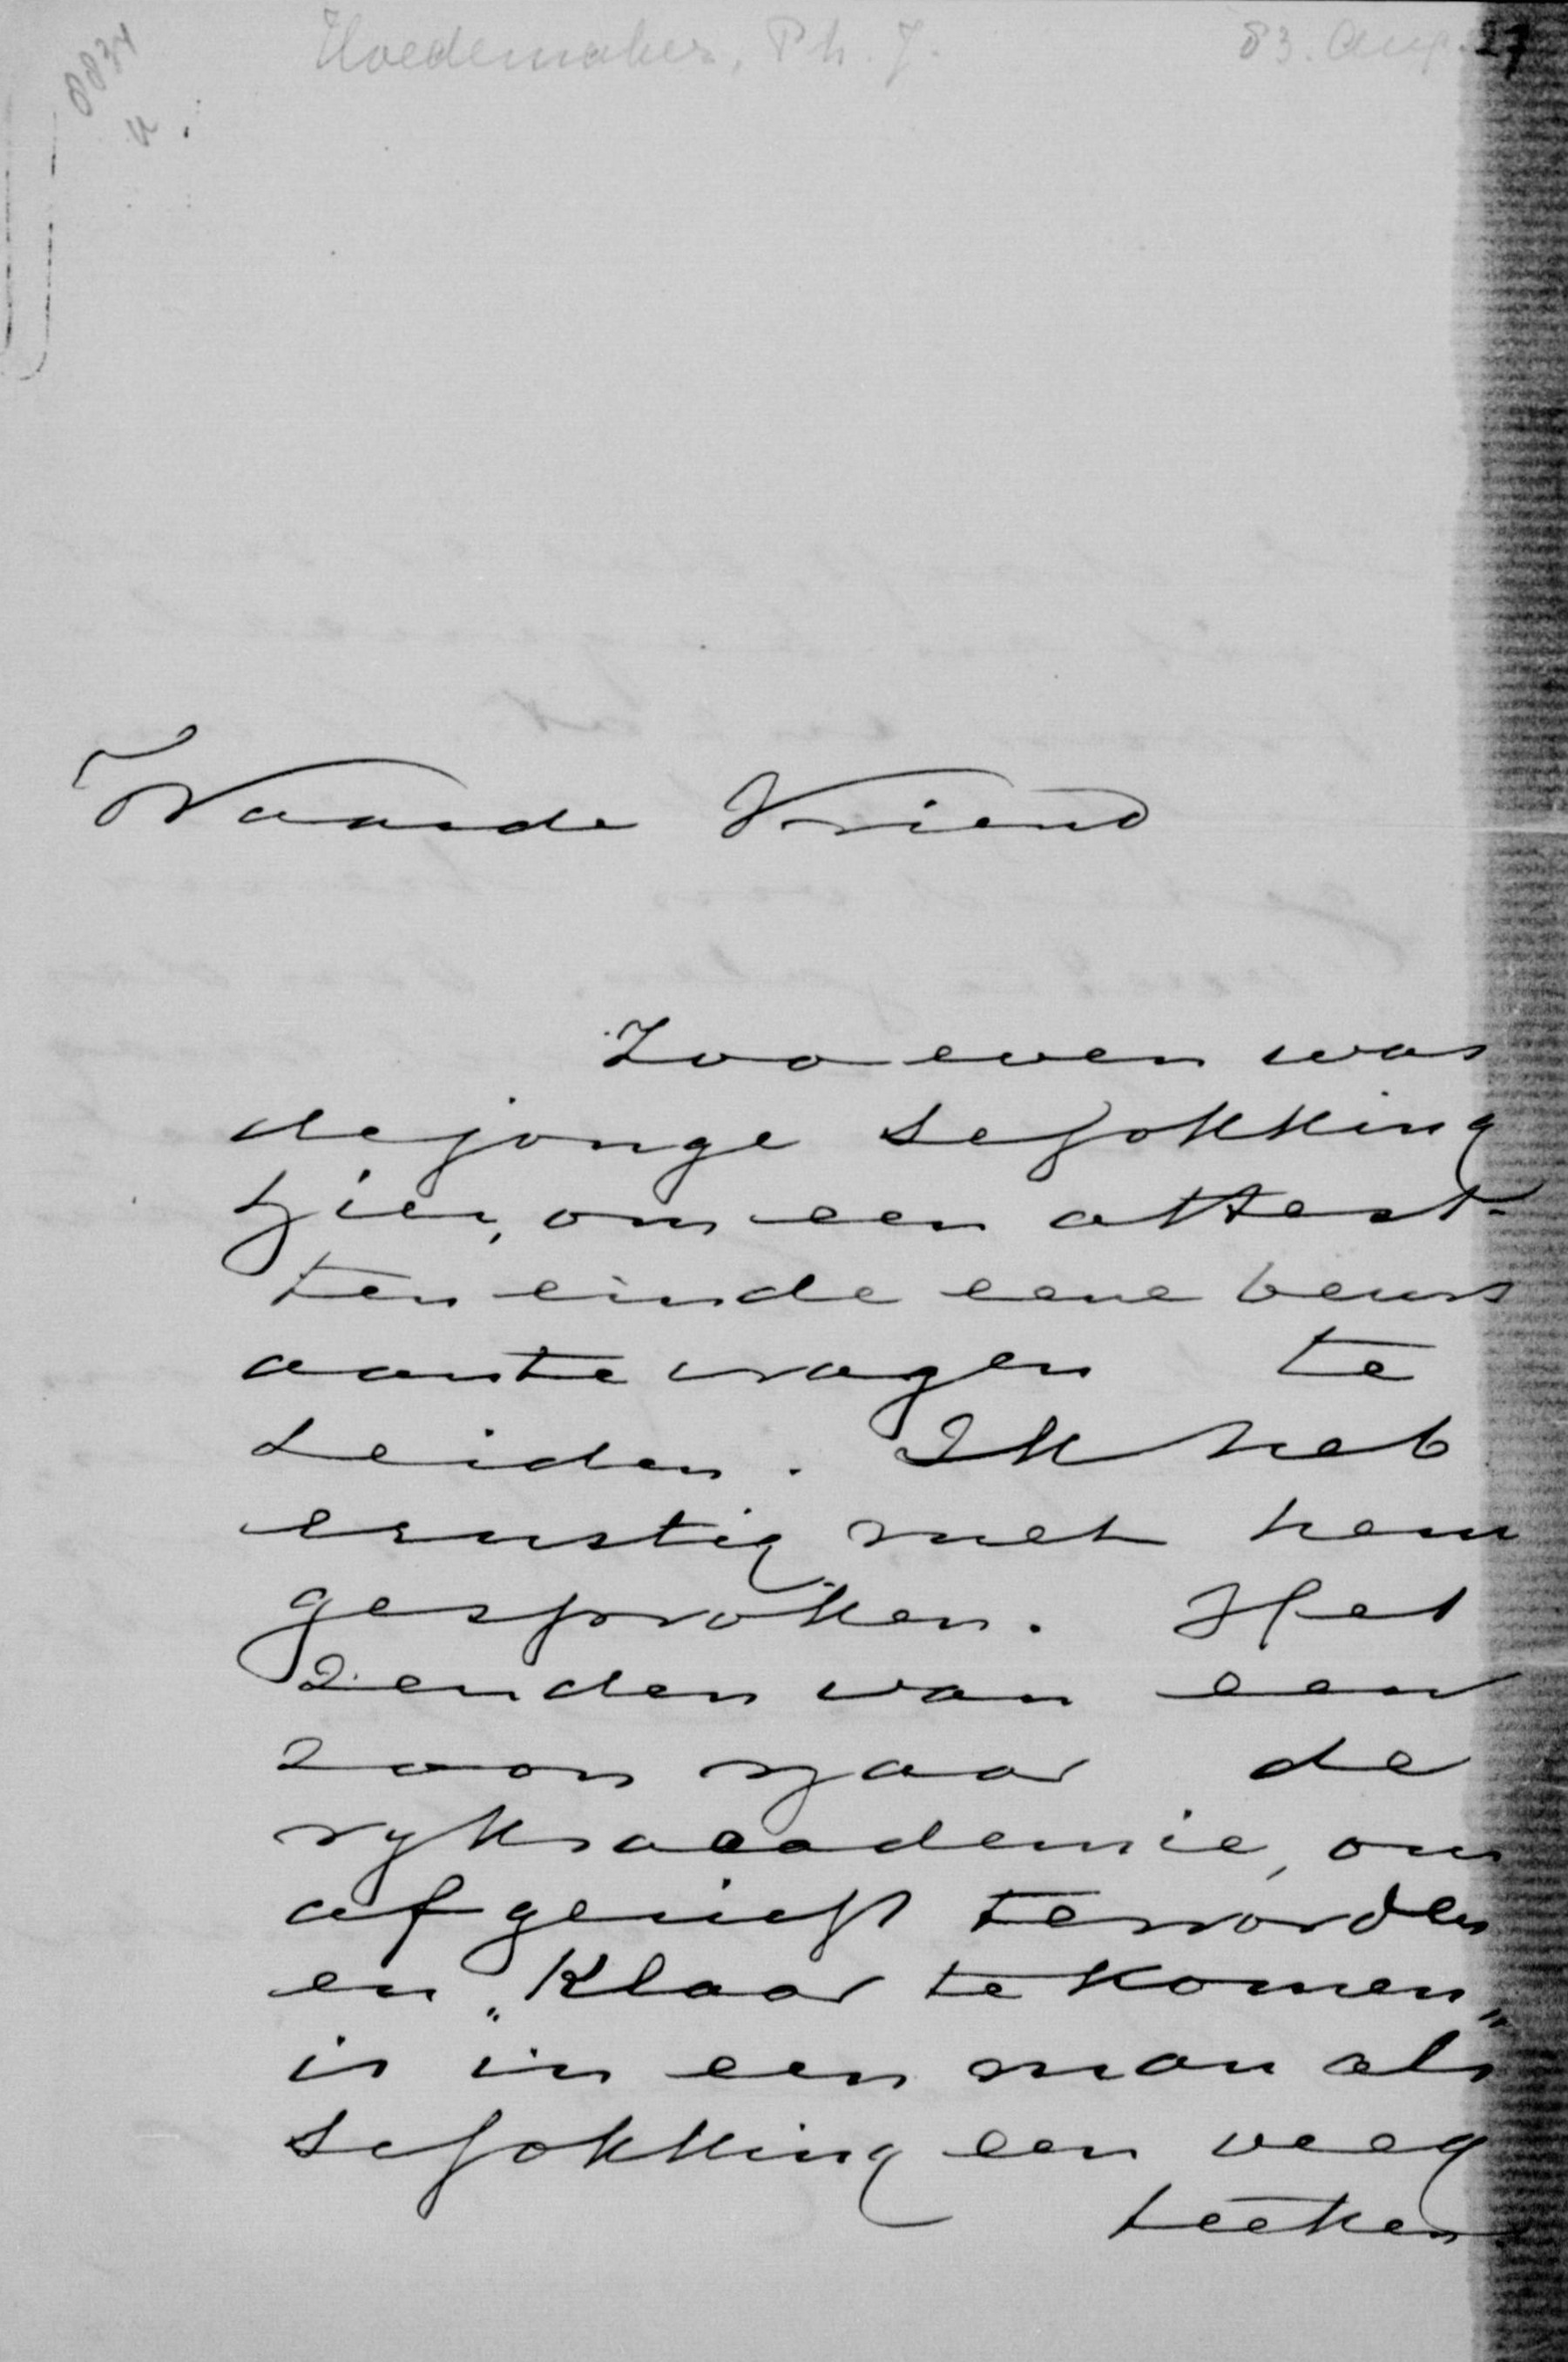 Hoedemaker, Ph. J. 83. Aug. 27
Waarde Vriend
Zoo even was
de jonge Schokking
hier, om een attest
ten einde eene beurs
aan te vragen te
Leiden. Ik heb
ernstig met hem
gesproken. Het
zenden van een
zoon naar de
ryksacademie, om
afgericht te worden
en „Klaar te komen„
is in een man als
Schokking een veeg
teeken